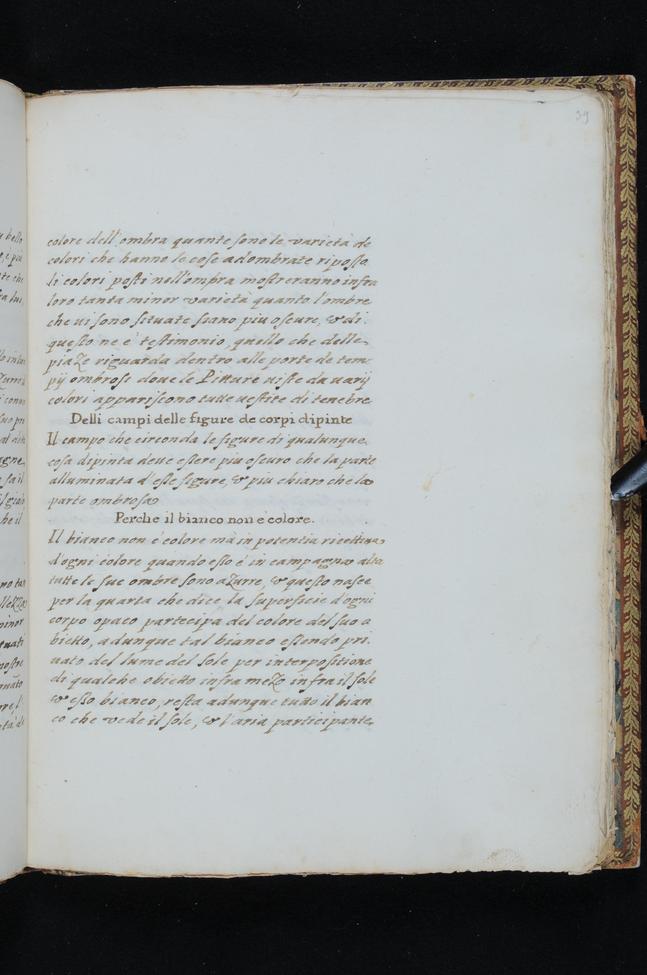 39
colore dell'ombra quante sono le varietà de
colori che hanno le cose adombrate riposta
li colori posti nell'ombra mostreranno infra
loro tanta minor varietà quanto l'ombre
che vi sono situate siano piu oscure, & di
questo ne è testimonio, quello che delle
piaze riguarda dentro alle porte de tem
pij ombrosi doue le Pitture uiste da uarij
colori appariscono tutte uestite di tenebre
Delli campi delle figure de corpi dipinte
Il campo che circonda le figure di qualunque
cosa dipinta deue essere piu oscuro che la parte
alluminata d'esse figure, & piu chiaro che la
parte ombrosa
Perche il bianco non è colore.
Il bianco non è colore mà in potentia ricettiua
d'ogni colore quando esso è in campagna alta
tutte le sue ombre sono azurre, & questo nasce
per la quarta che dice la superficie d'ogni
corpo opaco partecipa del colore del suo o
bietto, adunque tal bianco essendo pri
uato del lume del sole per interpositione
di qualche obietto infra mezo infra il sole
& esso bianco, resta adunque tutto il bian
co che vede il sole, & l'aria participante